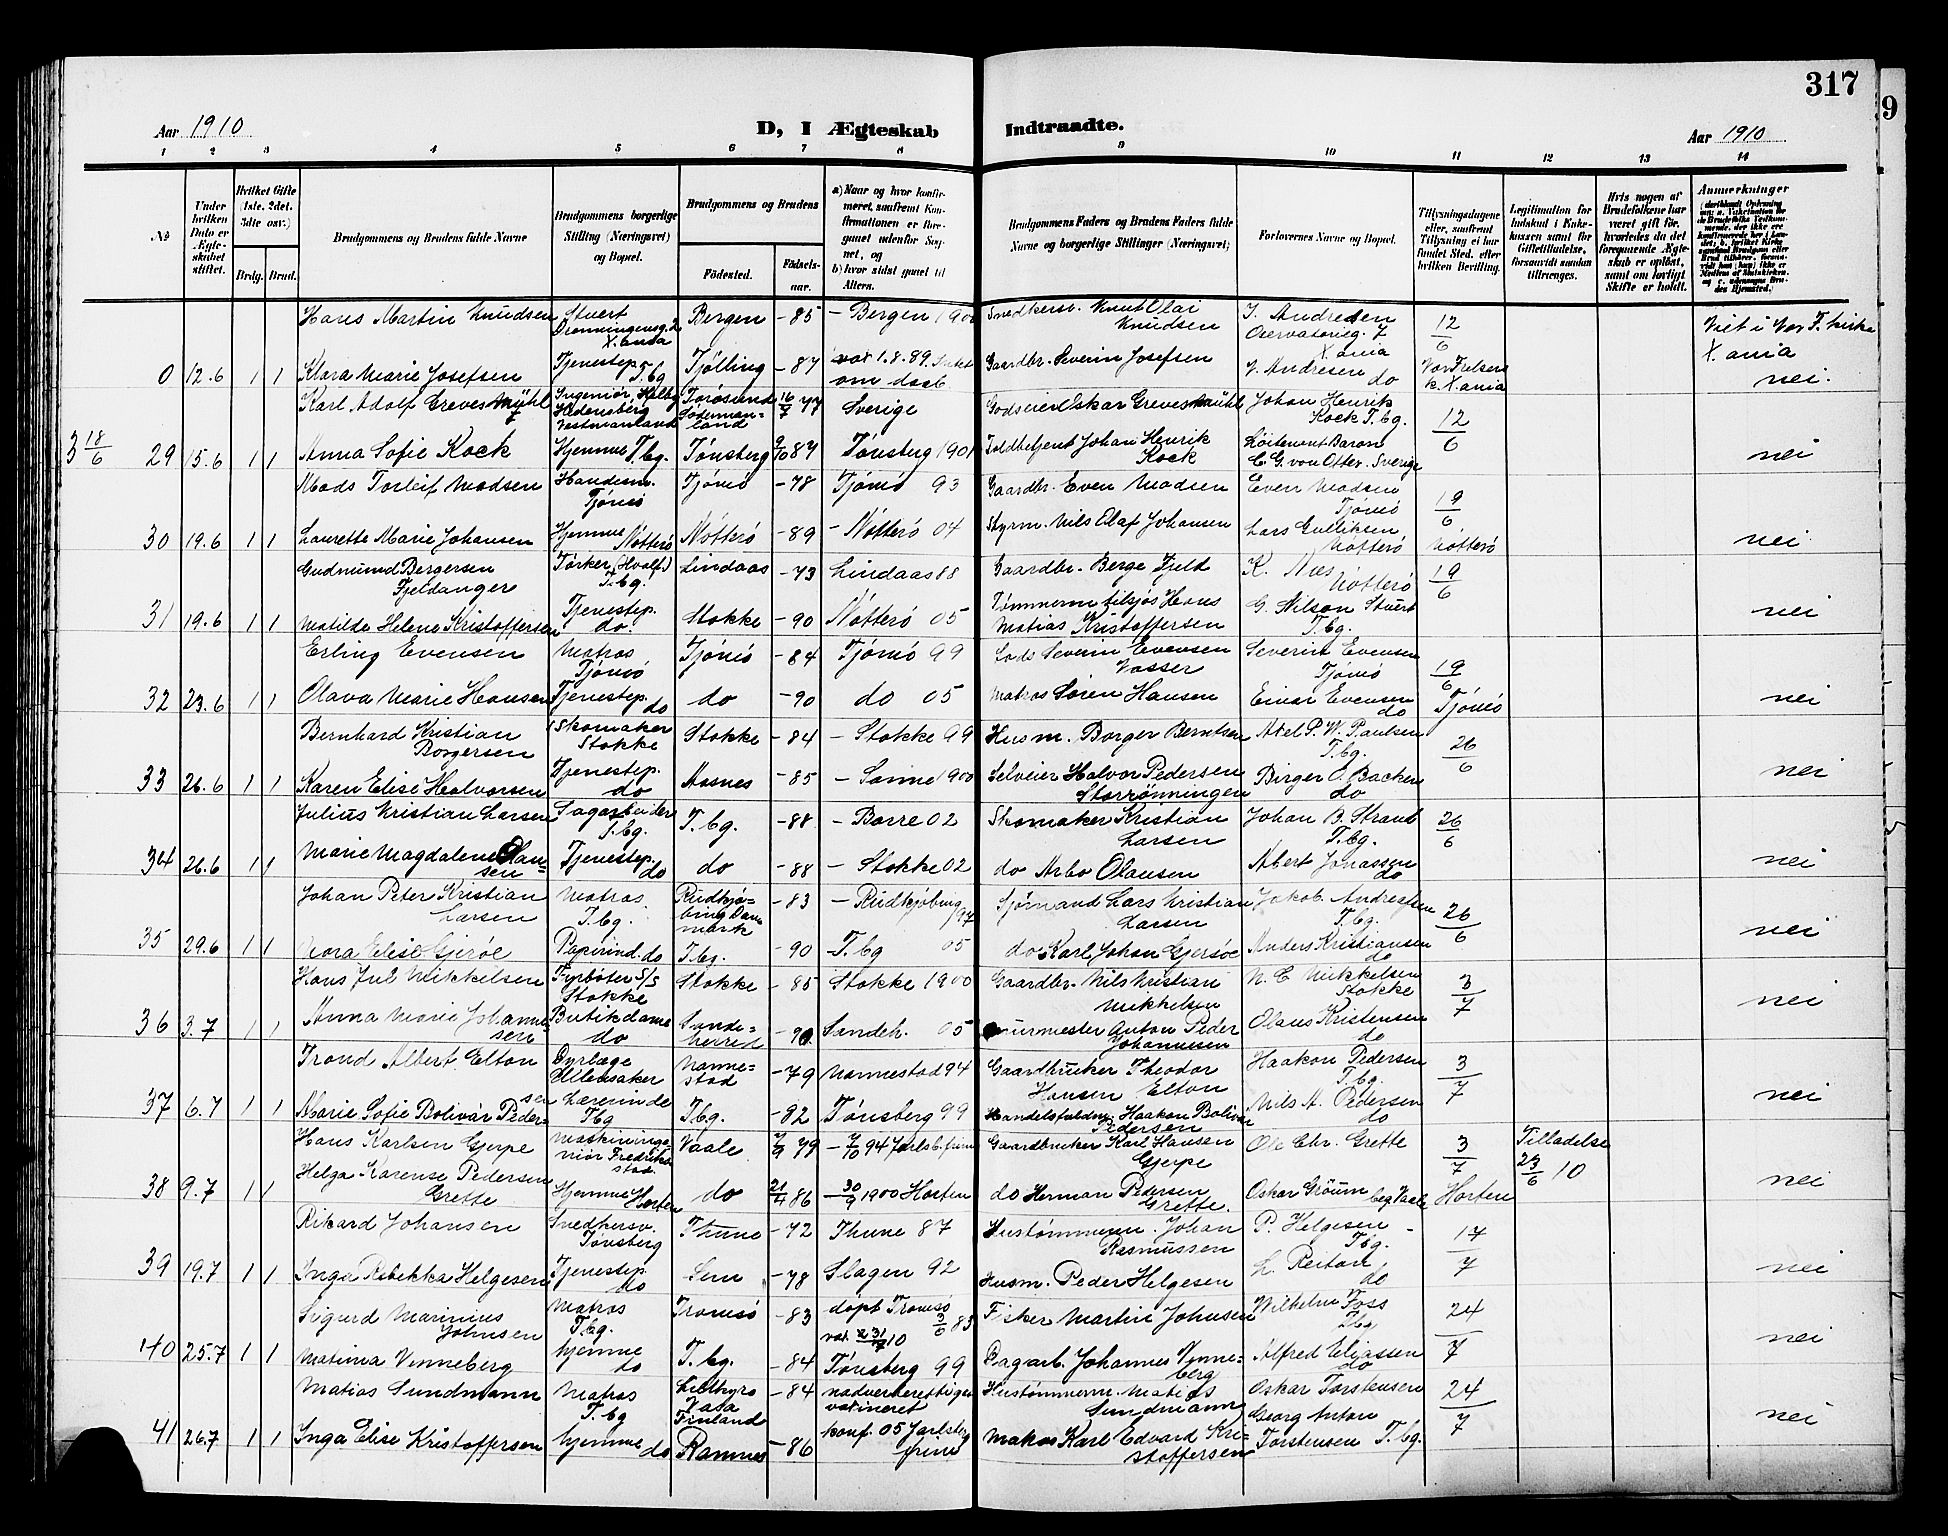 317
9
Aar 1910
D, I Ægteskab Indtraadte.
Aar 1910
1 2 3 4 5 6 7 8 9 10 11 12 13 14
No
Under hvilken Dato er Ægteskabet stiftet.
Hvilket Gifte (1ste, 2det, 3die osv.)
Brdg. Brud.
Brudgommens og Brudens fulde Navne
Brudgommens borgerlige Stilling (Næringsvei) og Bopæl.
Brudgommens og Brudens
Fødested.
Fødselsaar.
a) Naar og hvor konfirmeret, samfremt Konfirmationen er foregaaet udenfor Sognet, og
b) hvor sidst gaaet til Alters.
Brudgommens Faders og Brudens Faders fulde Navne og borgerlige Stillinger (Næringsvei)
Forlovernes Navne og Bopæl.
Tillysningsdagene eller, samfremt Tillysning ei har fundet Sted, efter hvilken Bevilling.
Legitimation for Indskud i Enkekassen samt for Giftetilladelse, forsaavidt saadan tiltrænges.
Hvis nogen af Brudefolkene har været gift før, hvorledes da det foregaaende Ægteskab er opløst, samt om lovligt Skifte er holdt.
Anmerkninger
Hans Martin Knudsen Stuert Dronningensg. 2 X.ania Bergen - 85 - Bergen 1900 Snedkersv. Knut Olai Knudsen J. Andresen Observatorieg. 7 X.ania 12/6 Viet i Vor F. kirke X.ania
0 12.6 1 1 Klara Marie Josefsen Tjenestep. T.bg Tjølling - 87 1.8.89 om daab Gaardbr. Severin Josefsen V. Andresen do Vor Frelsers k. X.ania nei.
Karl Adolf Grevesmühl Ingeniør Hedensberg Vestmanland Torøsund Södermanland 16/7 77 Sverige Godseier Oskar Grevesmühl Johan Henrik Kock T.bg. 12/6
3 18/6 29 15.6 1 1 Anna Sofie Kock Hjemme T.bg. Tønsberg 9/10 87 Tønsberg 1901 Toldbetjent Johan Henrik Kock Löitenant Baron C. G. von Otter. Sverige nei
Mads Torleif Madsen Handesm. Tjømø Tjømø - 78 Tjømø 93 Gaardbr. Even Madsen Even Madsen Tjømø 19/6
30 19.6 1 1 Laurette Marie Johansen Hjemme Nøtterø Nøtterø - 89 - Nøtterø 04 Styrm. Nils Olaf Johansen Lars Gulliksen Nøtterø Nøtterø nei
Gudmund Bergersen Fjeldanger Tørker (Hvalf.) T.bg. Lindaas - 73 Lindaas 88 Gaardbr. Berge Fjeld K. Næs Nøtterø 19/6
31 19.6 1 1 Matilde Helene Kristoffersen Tjenestep. do. Stokke - 90 Nøtterø 05 Tømmerm tilsjøs Hans Matias Kristoffersen G. Nilson Stuert T.bg. nei
Erling Evensen Matros Tjømø Tjømø - 84 Tjømø 99 Lods Severin Evensen Vasser Severin Evensen Tjømø 19/6
32 23.6 1 1 Olava Marie Hansen Tjenestep. do do - 90 do 05 Matros Søren Hansen Einar Evensen do Tjømø nei
Bernhard Kristian Borgersen Skomaker Stokke Stokke - 84 - Stokke 99 Husm. Borger Berntsen Axel P. W. Paulsen T.bg. 26/6
33 26.6 1 1 Karen Elise Halvorsen Tjenestep. do Aasnes - 85 - 1900 Selveier Halvor Pedersen Storrønningen Birger O. Backen do nei
Julius Kristian Larsen Sagarbeider T.bg. T.bg. - 88 - Borre 02 Skomaker Kristian Larsen Johan B. Strand T.bg. 26/6
34 26.6 1 1 Marie Magdalene Olausen Tjenestep. do do - 88 - Stokke 02 do Arbo Olausen Albert Jonassen do nei
Johan Peter Kristian Larsen Matros. T.bg. Rudkjøbing Danmark - 83 - Rudkjøbing /97 Sjømand Lars Kristian Larsen Jakob Andresen T.bg. 26/6
35 29.6 1 1 Nora Elise Gjerøe Papirind. do T.bg. - 90 T.bg 05 do Karl Johan Gjersøe Anders Kristiansen do nei
Hans Jul Mikkelsen Fyrbøter S/S Stokke Stokke - 85 Stokke 1900 Gaardbr. Nils Kristian Mikkelsen N. E. Mikkelsen Stokke 3/7
36 3.7 1 1 Anna Marie Johannesen Butikdame do Sandeherred - 90 Sandeh. 05 Murmester Anton Peder Johannesen Olaus Kristensen do nei
Trond Albert Elton Dyrlæge Ullensaker Nannestad - 79 Nannestad 94 Gaardbruker Theodor Hansen Elton Haakon Pedersen T.bg. 3/7
37 6.7 1 1 Marie Sofie Bolivár Pedersen Lærerinde Tbg T.bg. - 82 Tønsberg 99 Handelsfuldm. Haakon Bolivar Pedersen Nils A. Pedersen do nei
Hans Karlsen Gjerpe Maskiningeniør Fredrikstad Vaale 7/9 79 - 7/10 94 Jarlsb. frim Gaardbruker Karl Hansen Gjerpe Ole Chr. Grette 3/7 Tilladelse 23/6 10
38 9.7 1 1 Helga Karense Pedersen Grette Hjemme Horten do 21/4 86 - 30/9 1900 Horten do Herman Pedersen Grette. Oskar Grøum beg Vaale Horten nei
Rikard Johansen Snedkersv. Tønsberg Thune - 72 Thune 87 Hustømmerm. Johan Rasmussen P. Helgesen Tbg. 17/7
39 19.7 1 1 Inga Rebekka Helgesen Tjenestep. do Sem - 78 Slagen 92 Husm. Peder Helgesen L. Reitan do nei
Sigurd Marinius Johnsen Matros T.bg. Tromsø - 83 døpt Tromsø 3/6 83 Fisker Martin Johnsen Wilhelm Foss Tbg 24/7
40 25.7 1 1 Matima Venneberg hjemme do T.bg. - 84 Tønsberg 99 Dagarb. Johannes Venneberg Alfred Eliassen do nei
Matias Sundmann Matros T.bg Vasa Finland - 84 nadverberettiget Hustømmerm. Matias Sundmann Oskar Torstensen 24/7
41 26.7 1 1 Inga Elise Kristoffersen hjemme do Ramnes - 86 konf. 05 Jarlsberg frim Matros Karl Edvard Kristoffersen Georg Anton Torstensen T.bg. nei